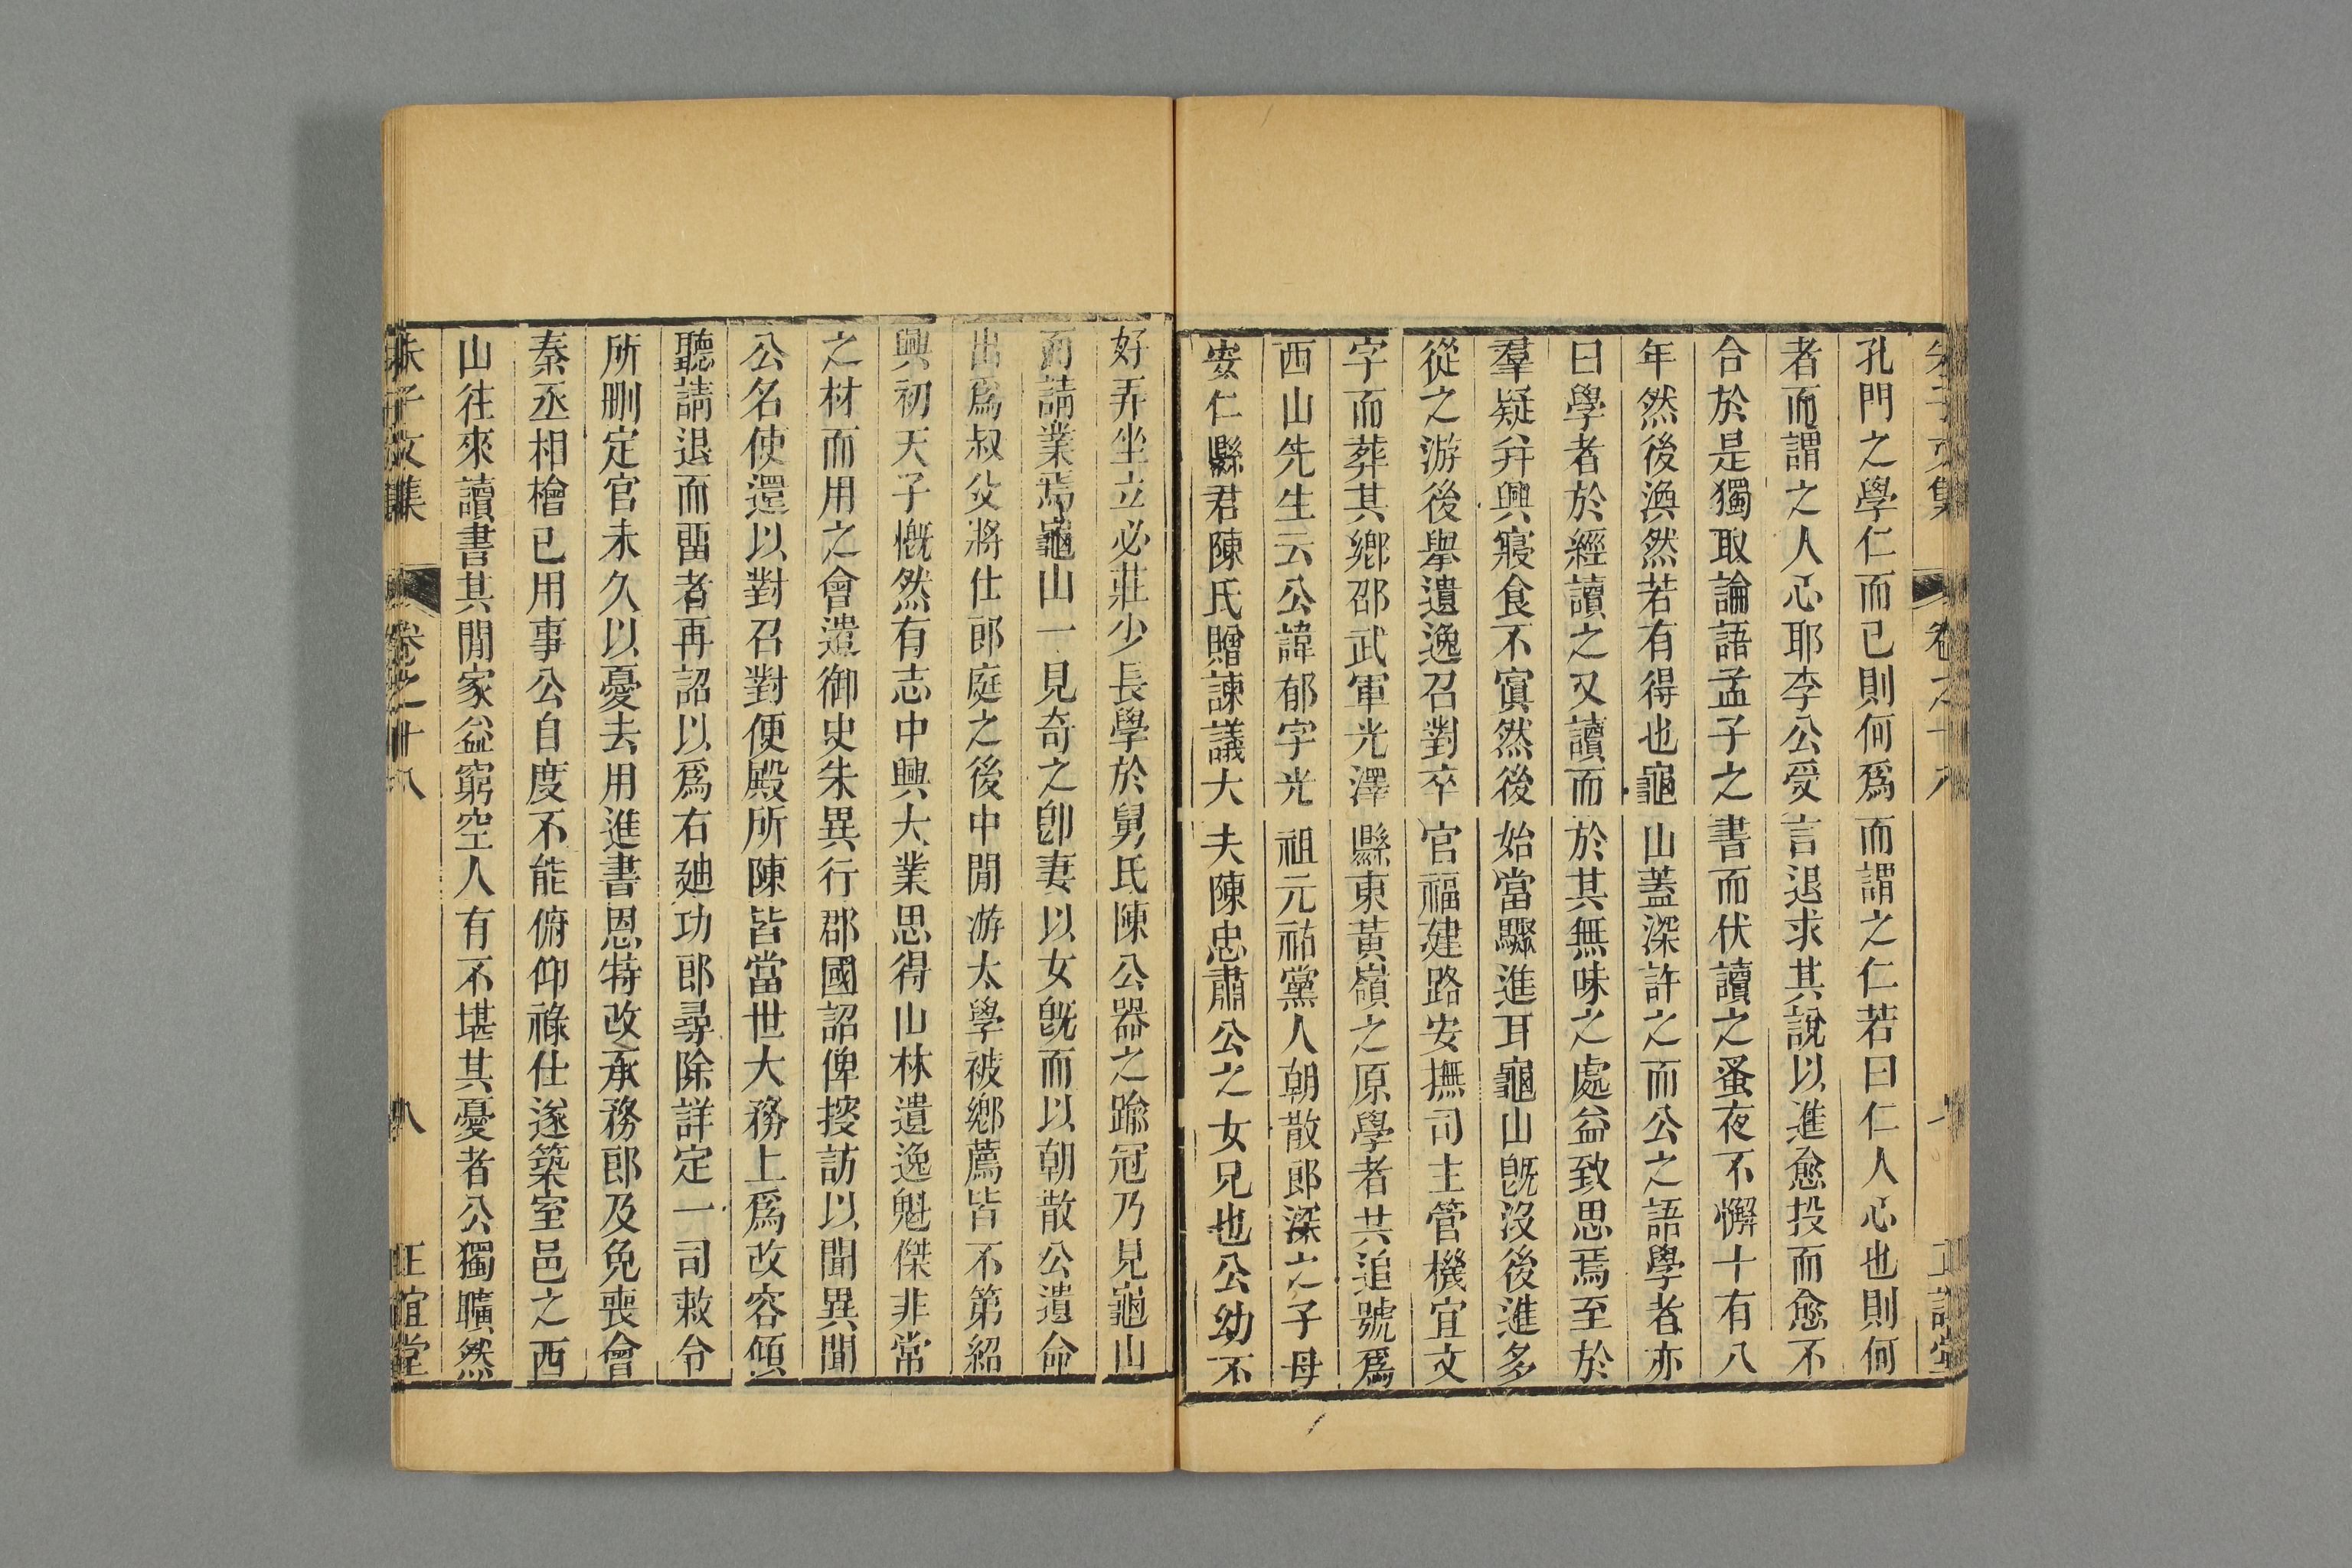 孔門之學仁而已則何爲而謂之仁若曰仁人心也則何
者而謂之人心耶李公受言退求其說以進愈投而愈不
合於是獨取論語孟子之書而伏讀之蚤夜不懈十有八
年然後渙然若有得也龜山蓋深許之而公之語學者亦
曰學者於經讀之又讀而於其無味之處益致思焉至於
羣疑并興寢食不寘然後始當驟進耳龜山旣沒後進多
從之游後舉遺逸召對卒官福建路安撫司主管機宜文
字而葬其鄉邵武軍光澤縣東黃嶺之原學者共追號爲
西山先生云公諱郁字光祖元祐黨人朝散郎深之子母
安仁縣君陳氏贈諫議大夫陳忠肅公之女兄也公幼不
好弄坐立必莊少長學於舅氏陳公器之踰冠乃見龜山
而請業焉龜山一見奇之卽妻以女旣而以朝散公遺命
出爲叔父將仕郎庭之後中閒游太學被鄉薦皆不第紹
興初天子慨然有志中興大業思得山林遺逸魁傑非常
之材而用之會遣御史朱異行郡國詔俾搜訪以聞異聞
公名使還以對召對便殿所陳皆當世大務上爲改容傾
聽請退而畱者再詔以爲右廸功郎尋除詳定一司敕令
所刪定官未久以憂去用進書恩特改承務郎及免喪會
秦丞相檜已用事公自度不能俯仰祿仕遂築室邑之西
山往來讀書其閒家益窮空人有不堪其憂者公獨曠然
朱子文集 卷之十八 八 正誼堂